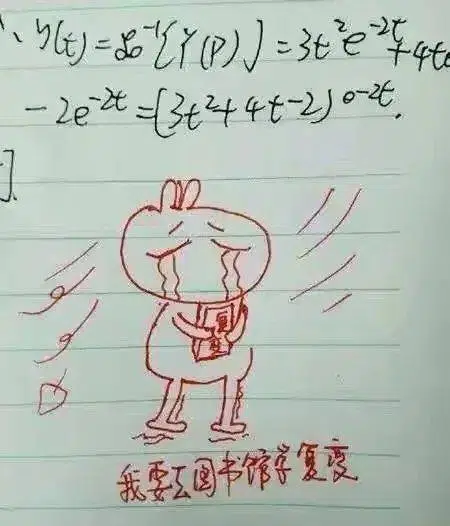 、y(t) = ℒ⁻¹{Y(p)} = 3t²e⁻²ᵗ + 4te
- 2e⁻²ᵗ = (3t² + 4t - 2) e⁻²ᵗ.
].
复
变
我要去图书馆学复变